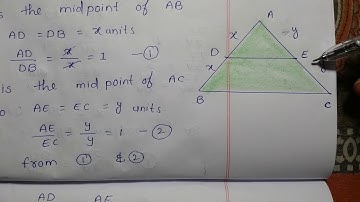 is the midpoint of AB
AD = DB = x units
AD/DB = x/x = 1 — ①
is the mid point of AC
AE = EC = y units
AE/EC = y/y = 1 — ②
from ① & ②
AD AE
A
x y
D E
x
B C